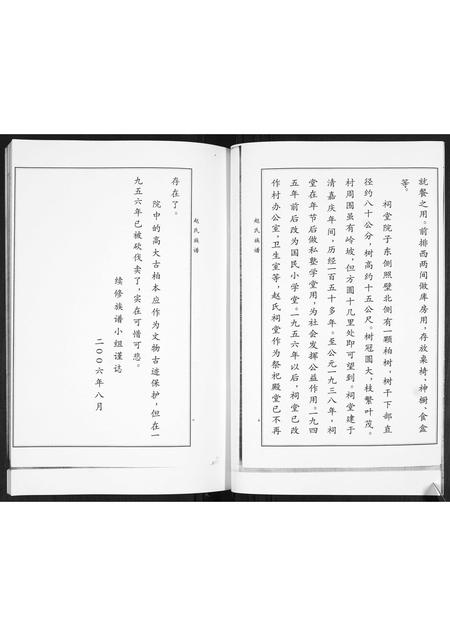 就餐之用。前排西两间做库房用，存放桌椅、神橱、食盒
等。
祠堂院子东侧照壁北侧有一颗柏树，树干下部直
径约八十公分，树高约十五公尺。树冠圆大，枝繁叶茂。
村周围虽有岭坡，但方圆十几里处即可望到。祠堂建于
清嘉庆年间，历经一百五十多年。至公元一九三八年，祠
堂在年节后做私塾学堂用，为社会发挥公益作用。一九四
五年前后改为国民小学堂。一九五六年以后，祠堂已改
作村办公室，卫生室等，赵氏祠堂作为祭祀殿堂已不再
赵氏族谱
赵氏族谱
存在了。
院中的高大古柏本应作为文物古迹保护，但在一
九五六年已被砍伐卖了，实在可惜可悲。
续修族谱小组谨志
二00六年八月